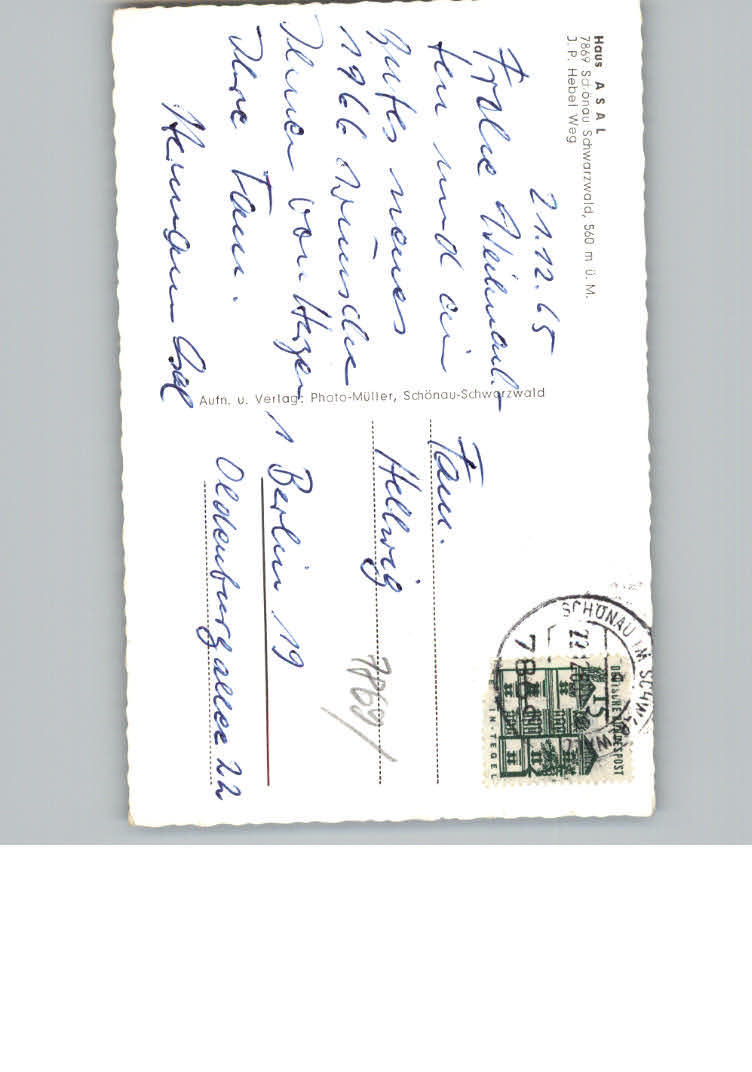 Haus ASAL
7869 Schönau Schwarzwald, 560 m ü. M.
J. P. Hebel Weg
21.12.65
Frohe Weihnach-
ten und ein
gutes neues
1966 wünsche
Ihnen von Herzen
Ihre Fam.
Hermann Asal
Aufn. u. Verlag: Photo-Müller, Schönau-Schwarzwald
Fam.
Hellwig
1 Berlin 19
Oldenburgallee 22
7869/
SCHÖNAU IM SCHW
DEUTSCHE BUNDESPOST
15
TEGEL